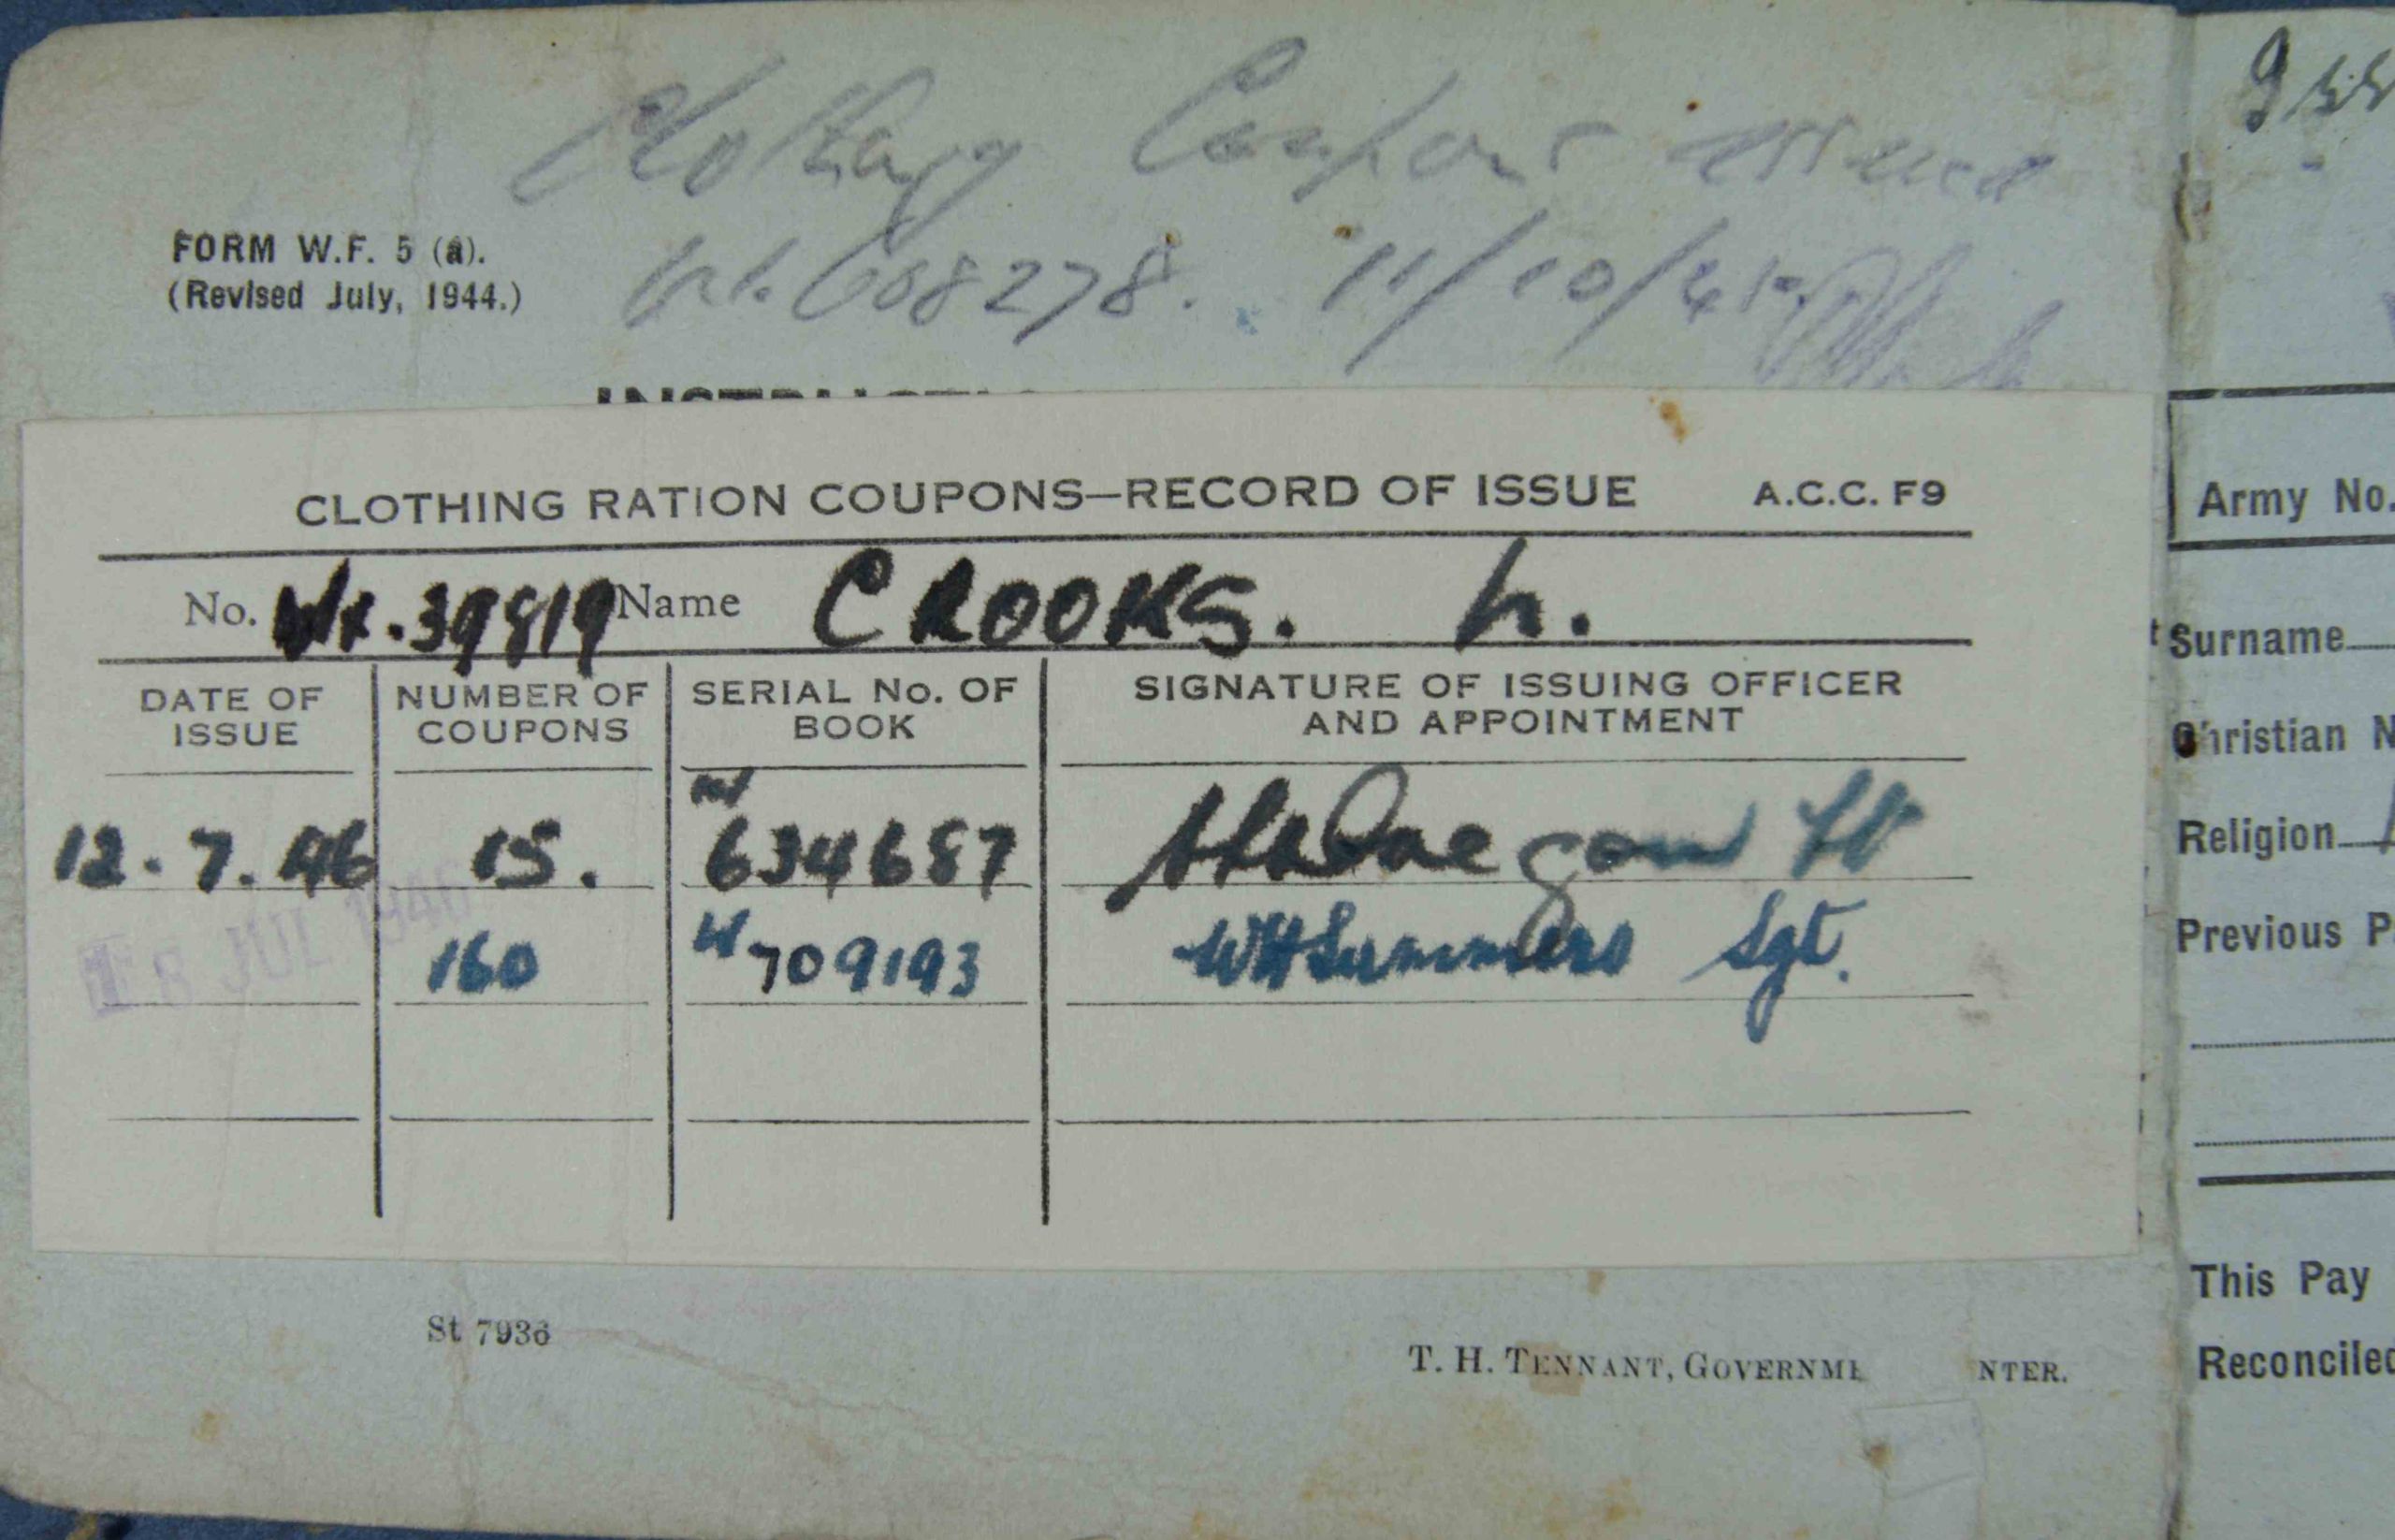 Clothing Coupons issued
FORM W.F. 5 (a).
(Revised July, 1944.)
608278. 11/10/45
CLOTHING RATION COUPONS—RECORD OF ISSUE A.C.C. F9
No. Wx.39819 Name CROOKS. h.
DATE OF ISSUE NUMBER OF COUPONS SERIAL No. OF BOOK SIGNATURE OF ISSUING OFFICER AND APPOINTMENT
12.7.46 15. 634687 Lt
JUL 1946 160 W 709193 WHSummers Sgt.
St 7936
T. H. TENNANT, GOVERNME NTER.
Army No.
Surname
Christian N
Religion
Previous P
This Pay
Reconciled